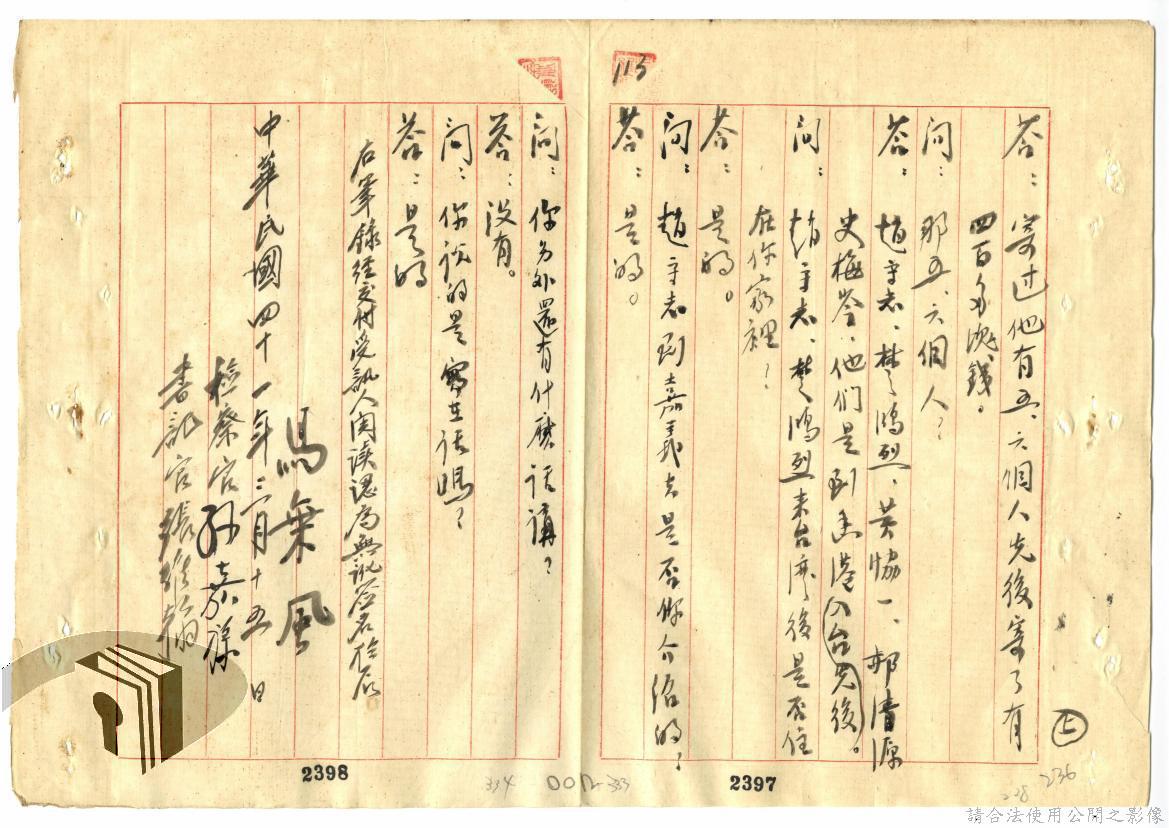 113
答：寄过他有五、六個人先後寄了有
四百多塊錢。
问：那五、六個人？
答：趙守志、楚鴻烈、黃協一、郝清源
史梅岑、他们是到香港入台先後。
问：趙守志、楚鴻烈来台灣後是否住
在你家裡？
答：是的。
问：趙守志到嘉義去是否你介绍的？
答：是的。
问：你另外還有什麽话講？
答：没有。
问：你说的是實在话嗎？
答：是的
右筆錄經交付受訊人閱读認為無訛簽名於后
馮秉風
中華民國四十一年二月十五日
檢察官孫嘉祿
書記官張維翰
上
2398
334
333
2397
228
236
請合法使用公開之影像